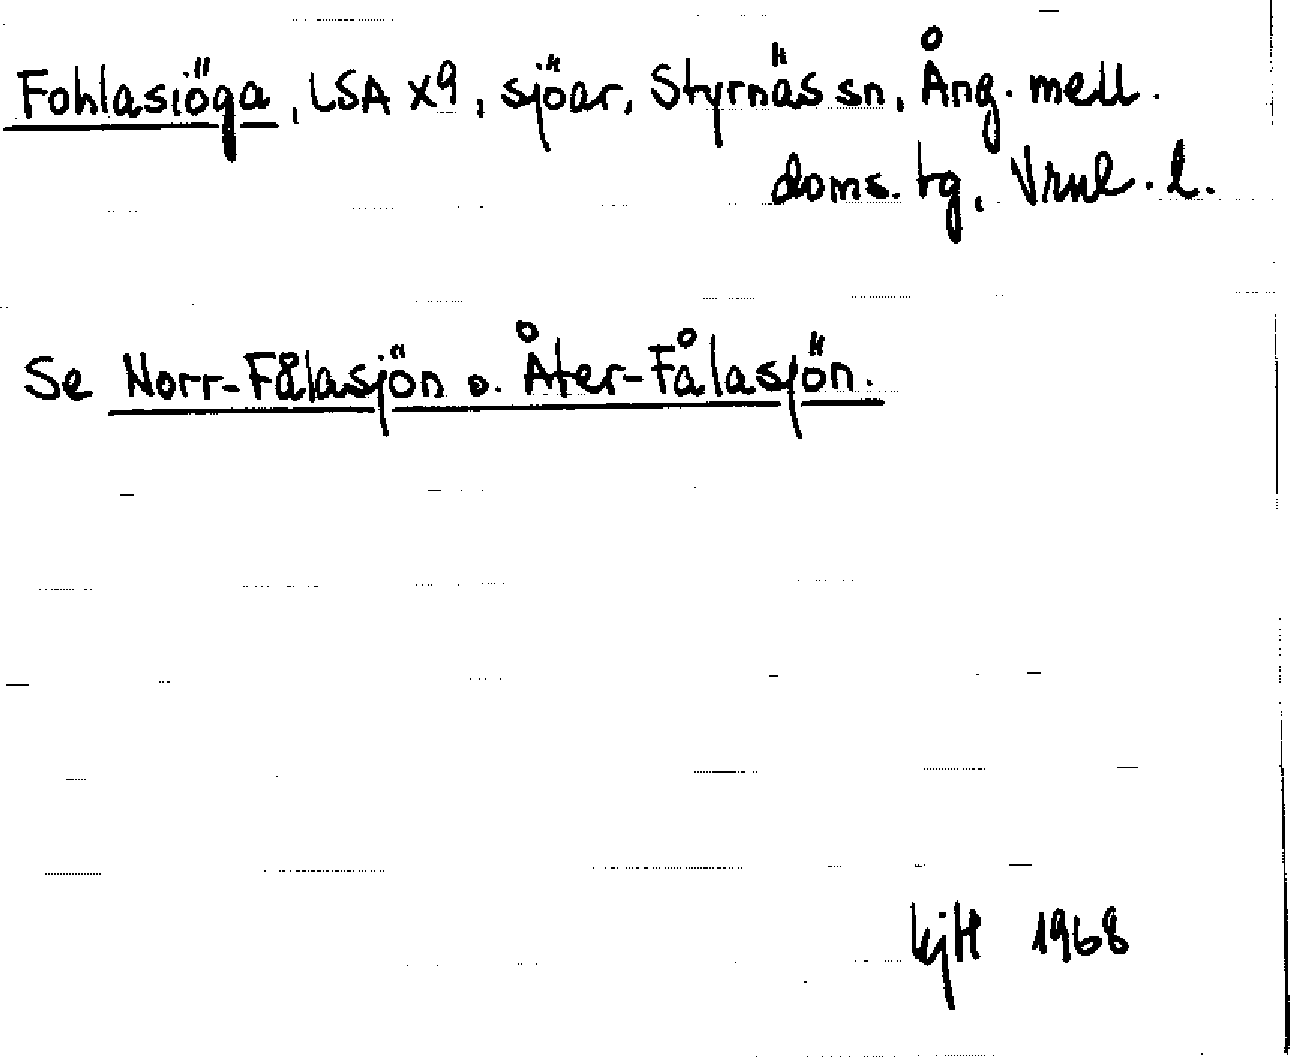 Fohlasiöga, LSA X9, sjöar, Styrnäs sn, Ång. mell.
doms. tg, Vrnl. l.
Se Norr-Fålasjön o. Åter-Fålasjön.
kjH 1968